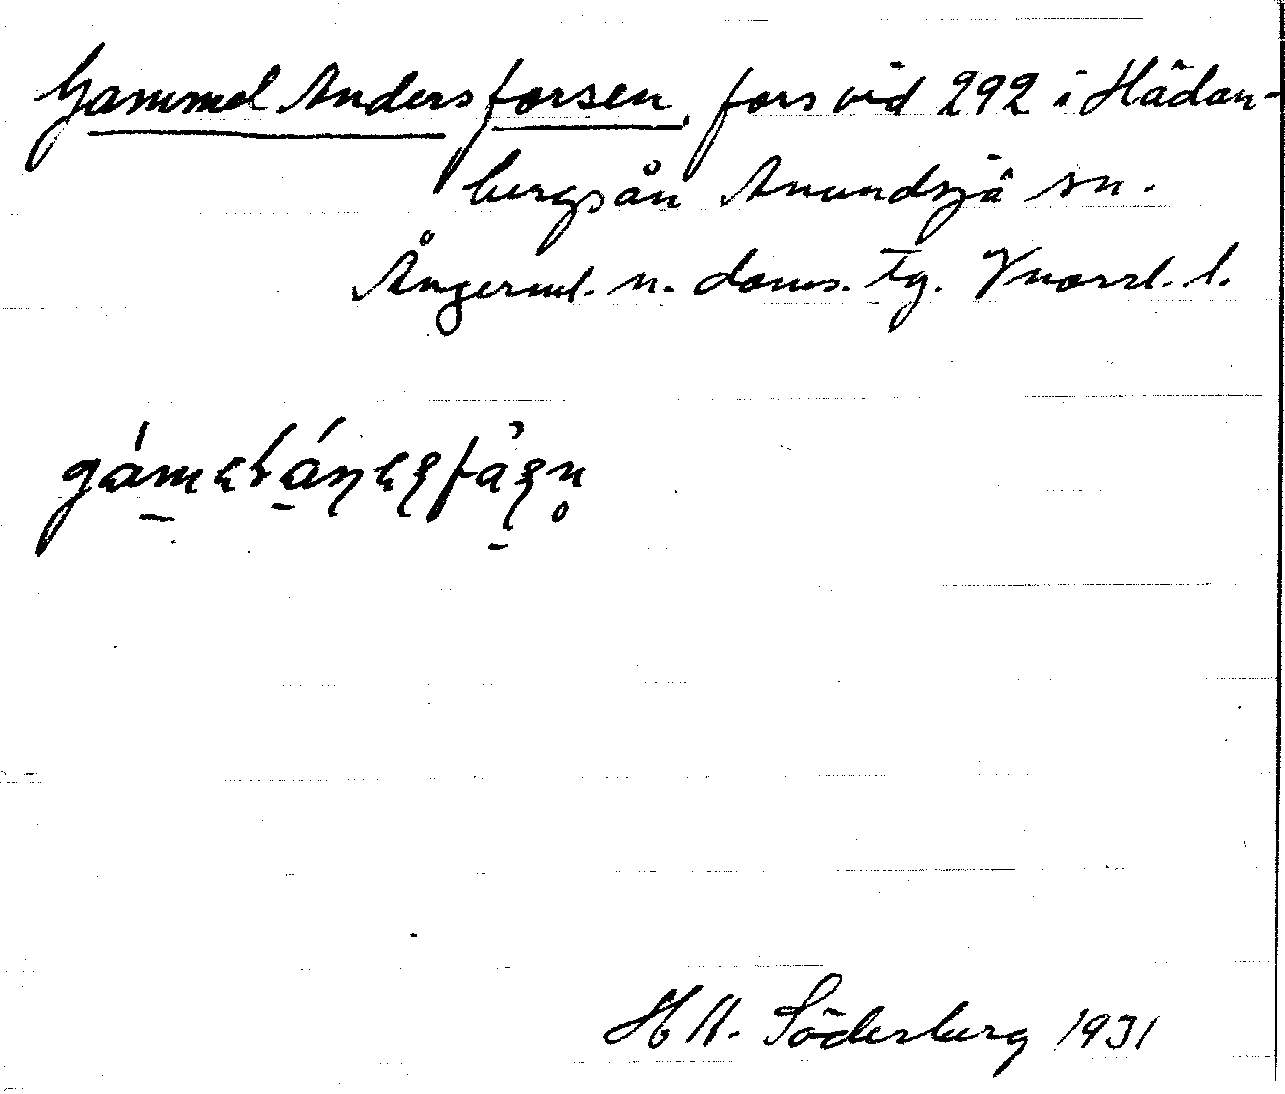 Gammel Andersforsen, fors vid 292 i Hädan-
bergsån Anundsjö sn.
Ångerml. n. doms. tg. Vnorrl. l.
H A. Söderberg 1931